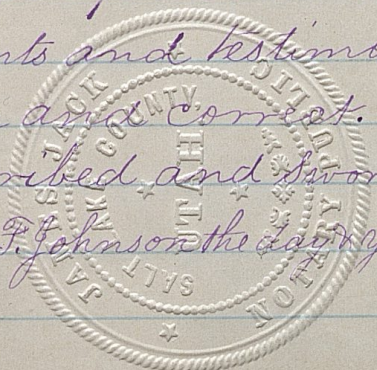 nts and testimo
and correct.
ribed and swor
F. Johnson the day & y
JAMES JACK
NOTARY PUBLIC
SALT LAKE COUNTY,
UTAH